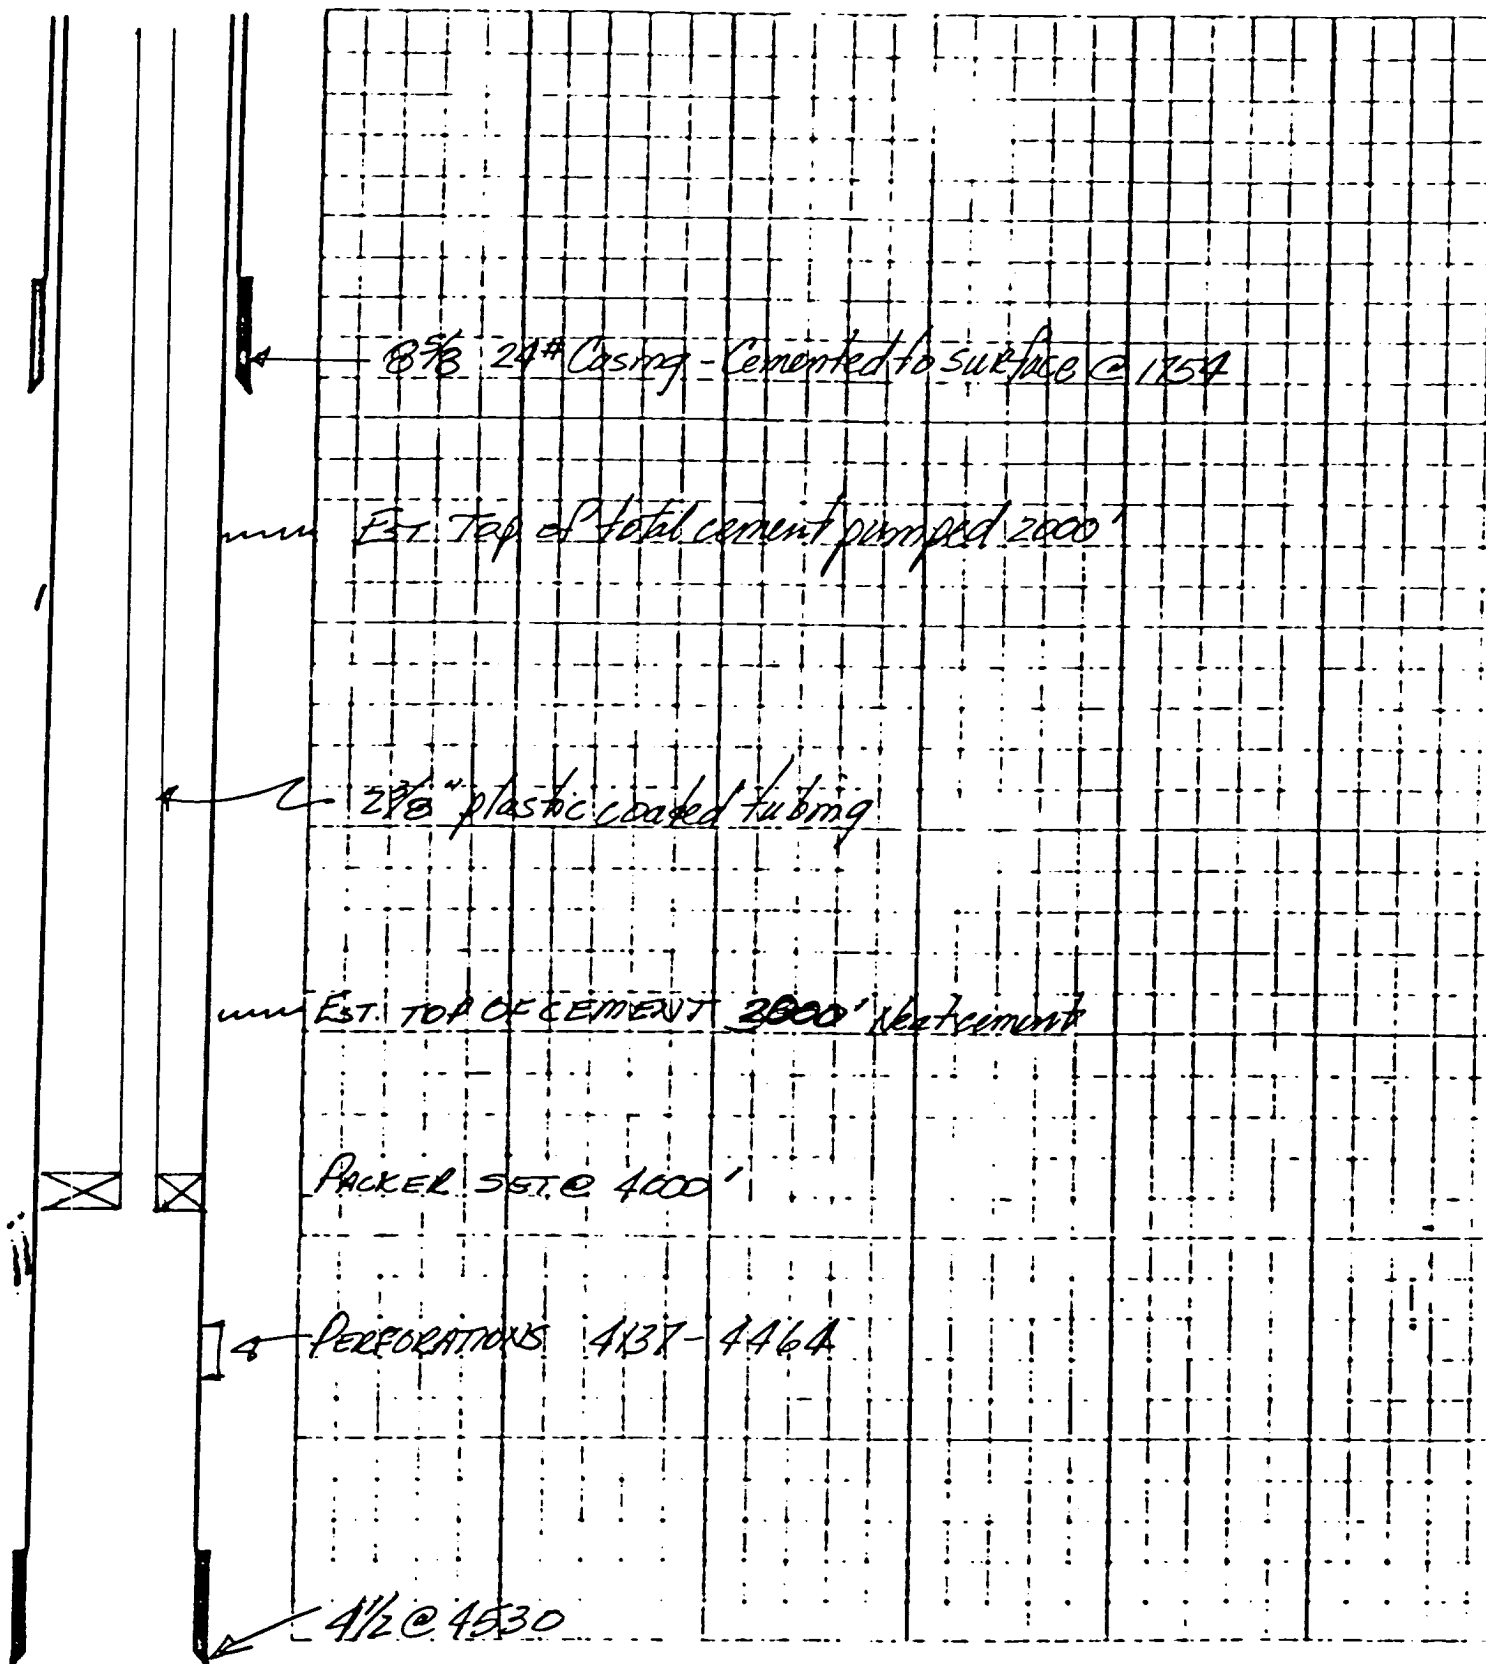 8 5/8 24# Casing - Cemented to surface @ 1254
EST Top of total cement pumped 2000'
2 3/8" plastic coated tubing
EST. TOP OF CEMENT 3800' Neat cement
PACKER SET @ 4000'
PERFORATIONS 4137-4464
4 1/2 @ 4530